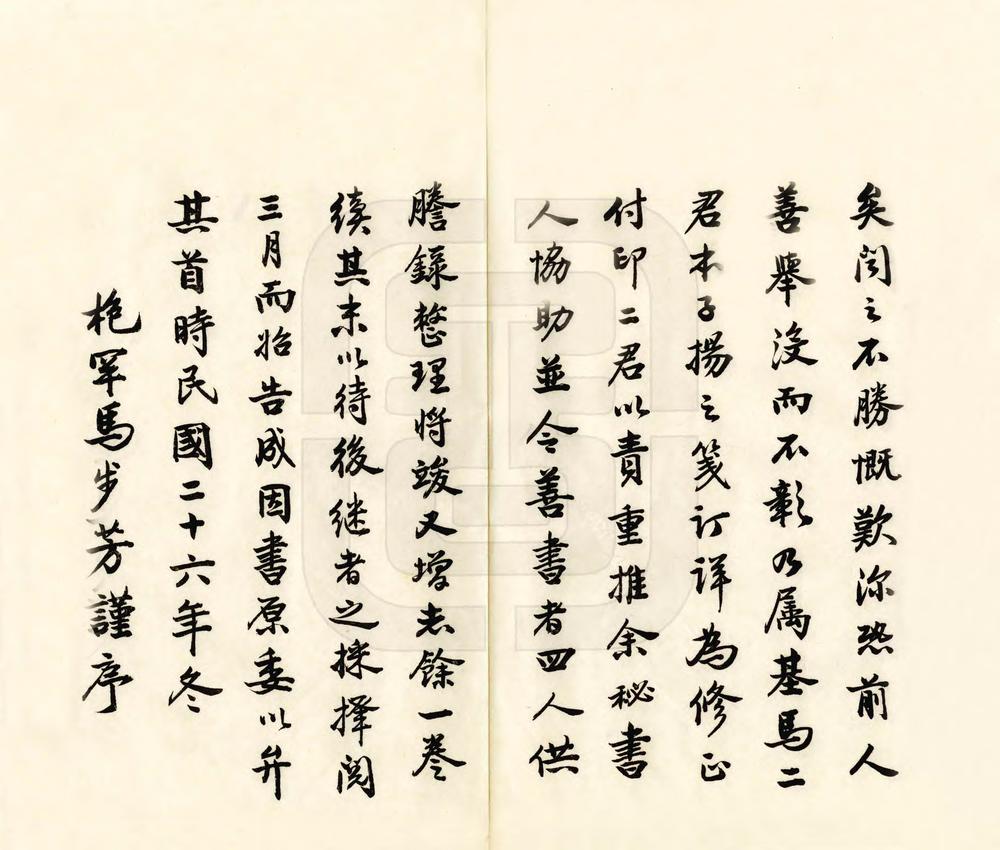 矣閱之不勝慨歎深恐前人
善舉沒而不彰乃属基馬二
君本子揚之箋訂詳為修正
付印二君以責重推余秘書
人協助並令善書者四人供
謄錄整理將竣又增志餘一卷
續其末以待後继者之採擇閱
三月而始告成因書原委以弁
其首時民國二十六年冬
枹罕馬步芳謹序